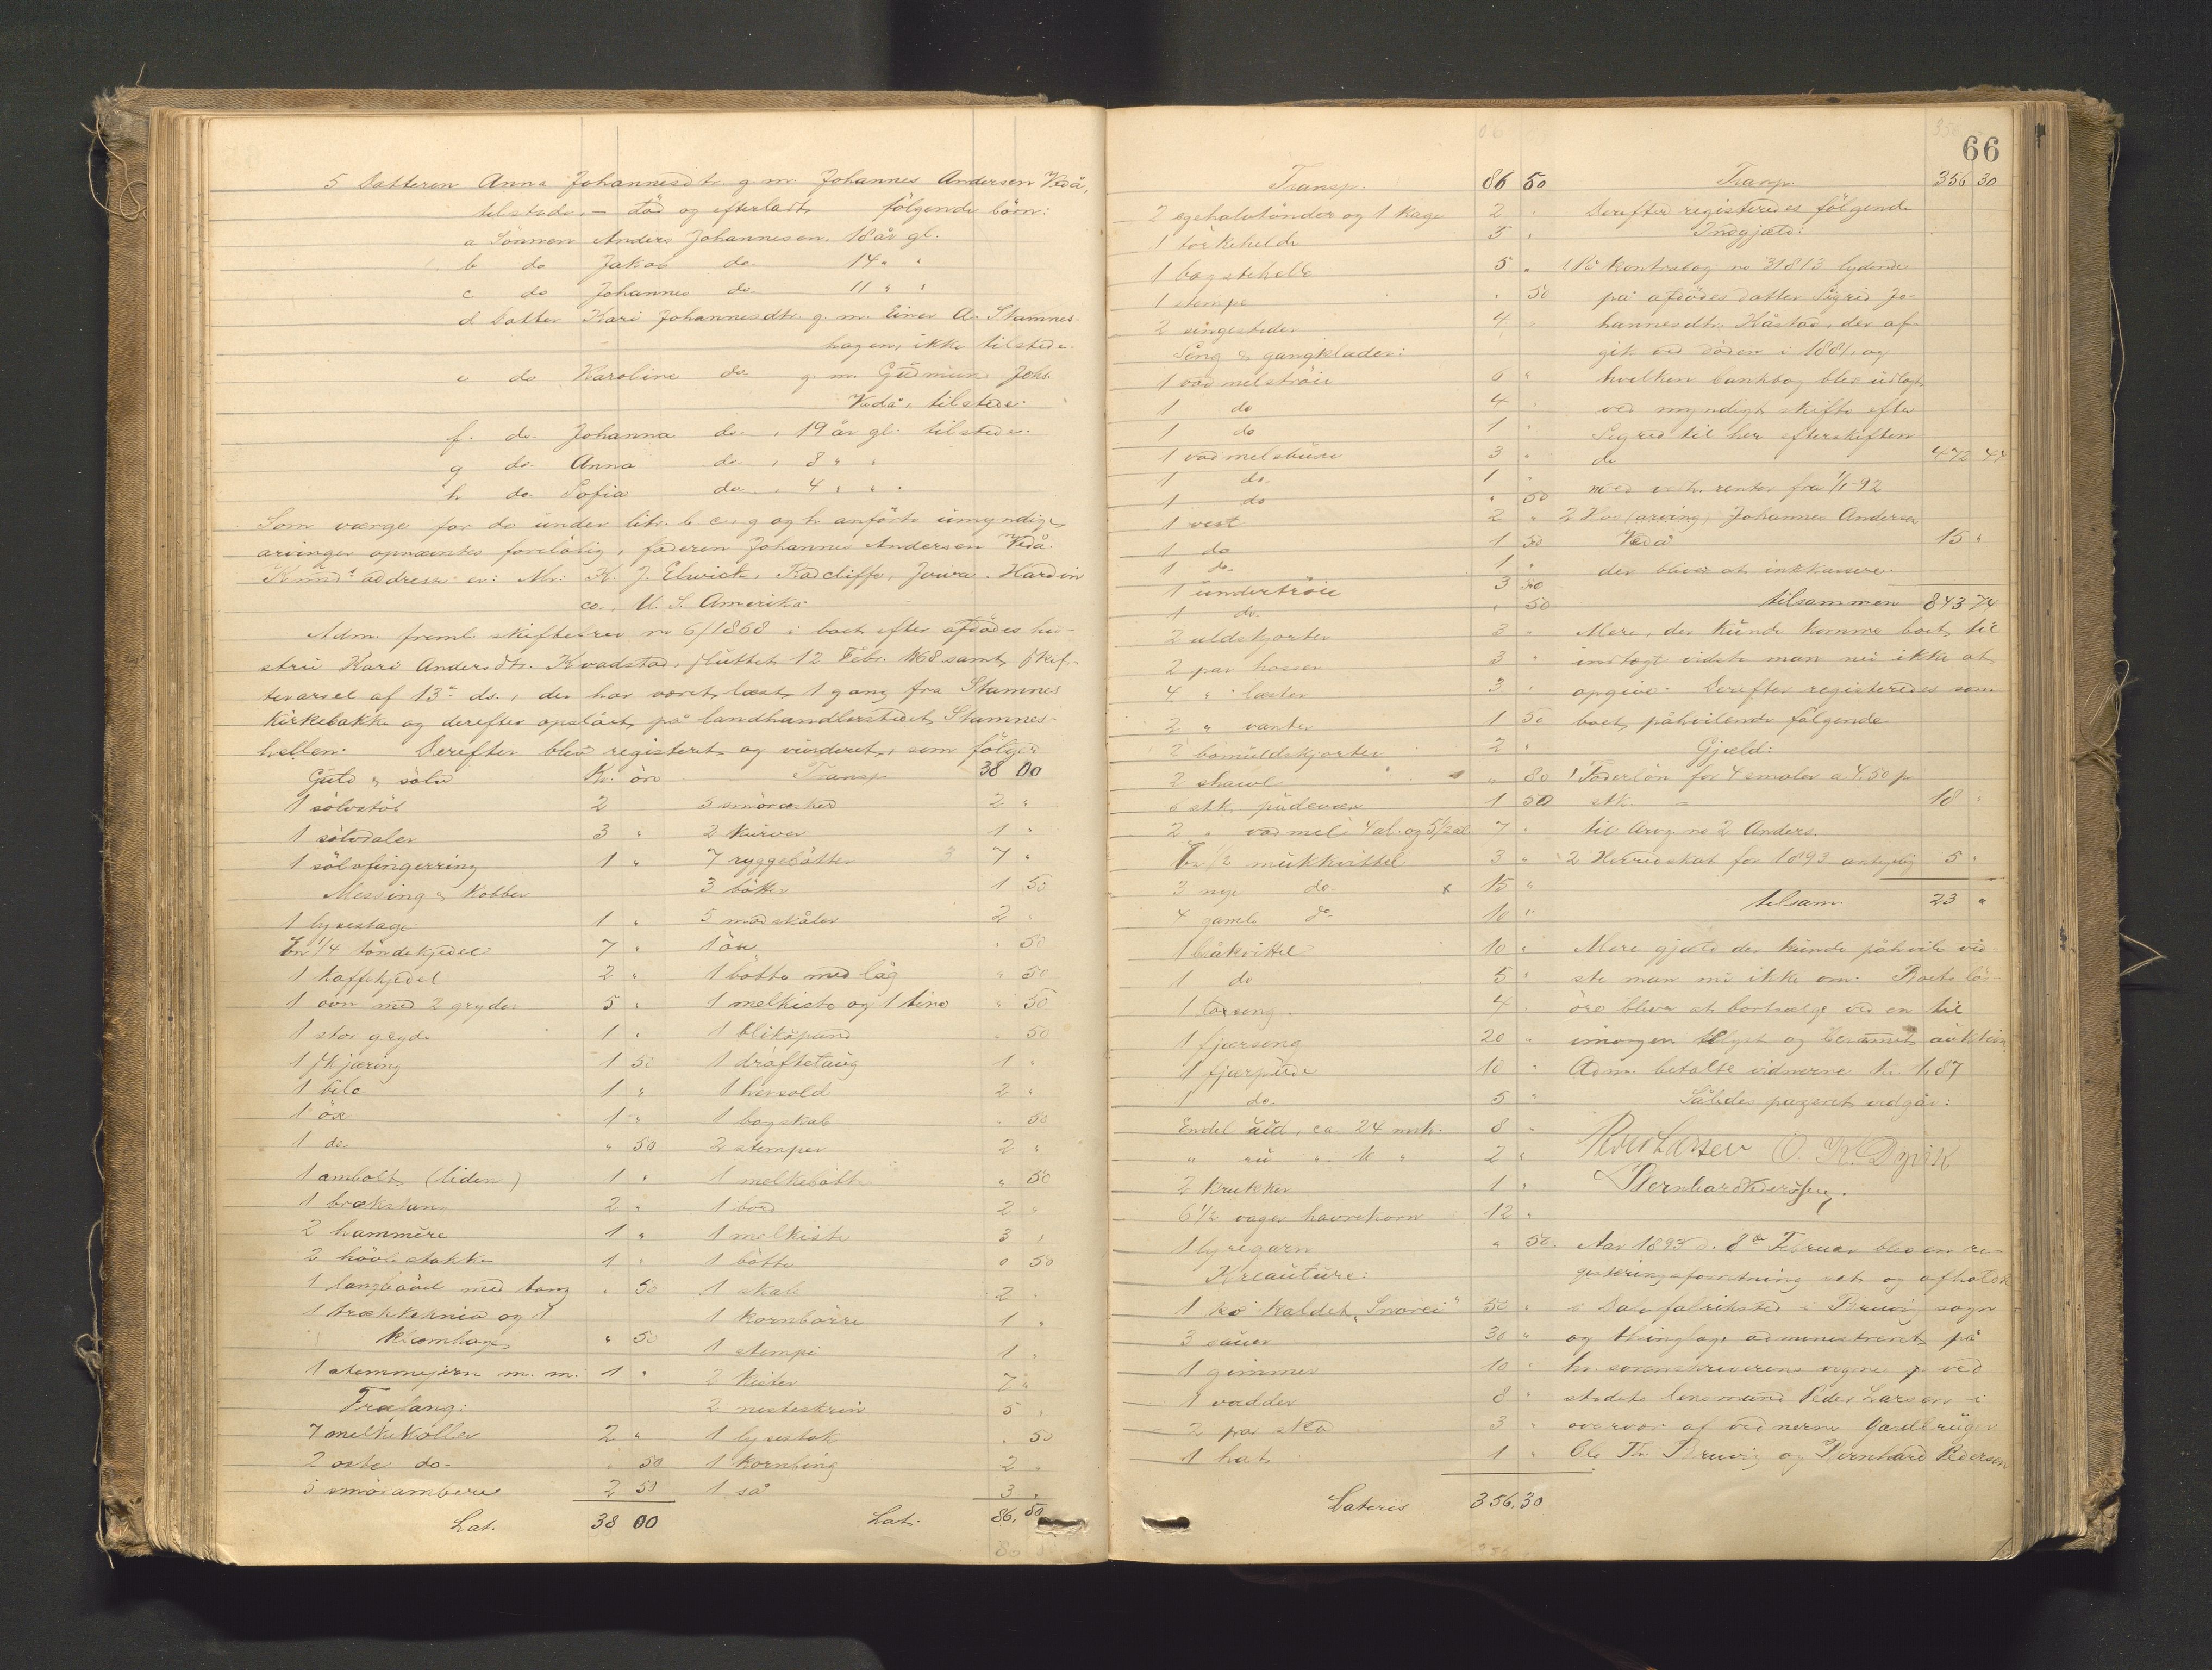 5 Datteren Anna Johannesdtr. g. m. Johannes Andersen Vedå,
tilstede, – död og efterladt følgende börn:
a Sönnen Anders Johannesen, 18 år gl.
b do Jakob do 14 " "
c do Johannes do 11 " "
d Datter Kari Johannesdtr. g. m. Einer A. Stamnes-
hagen, ikke tilstede.
e do Karoline do g. m. Gudmun Johs.
Vedå, tilstede.
f. do. Johanna do , 19 år gl. tilstede.
g do. Anna do , 8 " "
h do. Sofia do , 4 " " "
Som værge for de under litr. b. c. g og h anförte umyndige
arvinger opnævntes foreløbig, faderen Johannes Andersen Vedå.
Knuds addresse er: Mr. K. J. Elwick, Radcliffe, Jowa. Hardin
co. U. S. Amerika.
Adm. freml. skiftebrev no 6/1868 i boet efter afdödes hu-
stru Kari Andersdtr. Kvadstad, sluttet 12 Febr. 1868 samt skif-
tevarsel af 13de ds., der har været læst 1 gang fra Stamnes
kirkebakke og derefter opslået på landhandlerstedet Stamnes-
hellen. Derefter blev registeret og vurderet, som følger:
Guld & sölv Kr. öre
1 sölvstöb 2
1 sölvdaler 3 "
1 sölvfingerring 1 "
Messing & Kobber
1 lysestage 1 "
En 1/4 töndekjedel 7 "
1 kaffekjedel 2 "
1 ovn med 2 gryder 5 "
1 stor gryde 1 "
1 skjæring 1 50
1 bile 1 "
1 öx 1 "
1 do. " 50
1 ambolt (liden) 1 "
1 brækstang 2 "
2 hammere 1 "
2 hövlestokke 1 "
1 langöövel med tang " 50
1 trækkekniv og 1
klæmhage " 50
1 stemmejern m. m. 1 "
Trælang:
7 melkekoller 2 "
2 oste do. " 50
5 smörambere 2 50
Lat. 38 00
Transp. 38 00
5 smöræsker 2 "
2 kurver 1 "
7 ryggebötter 7 "
3 bötter 1 50
5 madskåler 2 "
1 öse " 50
1 bötte med låg " 50
1 melkiste og 1 tine " 50
1 blikspand " 50
1 dröftetaug 1 "
1 hersold 2 "
1 bogskab " 50
2 stemper 2 "
1 melkebötte " 50
1 bord 2 "
1 melkiste 3 "
1 bötte 0 50
1 skab 2 "
1 kornbörre 1 "
1 stempe 1 "
2 kister 7 "
2 nisteskrin 5 "
1 lysestok " 50
1 kornbing 2 "
1 så 3 "
Lat. 86, 50
66
Transp. 86 50
2 egehalvtönder og 1 kage 2 "
1 törkehelde 5 "
1 bagstehelle 5 "
1 stempe " 50
2 sengesteder 4 "
Seng & gangklæder:
1 vadmelströie 6 "
1 do 4 "
1 do 1 "
1 vadmelsbuxe 3 "
1 do. 1 "
1 do " 50
1 vest 2 "
1 do 1 50
1 do. 1 "
1 undertröie 3 20
1 do. " 50
2 uldskjorter 3 "
2 par hosser 3 "
4 " læster 3 "
2 " vanter 1 50
2 bomuldskjorter 2 "
2 shawl " 80
6 stk. pudevær 1 50
2 " vadmel 4 al. og 5 1/2 al. 7 "
En 1/2 mükkvittel 3 "
3 nye do. 15 "
4 gaml do. 10 "
1 bråkvittel 10 "
1 do 5 "
1 do seng. 4 "
1 fjærseng 20 "
1 fjærpude 10 "
1 do. 5 "
Endel uld, ca. 24 mrk. 8 "
" 2 "
2 krukker 1 "
6 1/2 vager havrekorn 12 "
1 lyregarn " 50.
Kreauture:
1 ko kaldet „Snorei" 50 "
3 sauer 30 "
1 gimmer 10 "
1 vædder 8 "
2 par sko 3 "
1 hat 1 "
Lateris 356,30
Transp. 356 30
Derefter registeredes følgende
Indgjæld:
1 På kontrabog no 31813 lydende
på afdödes datter Sigrid Jo-
hannesdtr. Kåstad, der af-
gik ved döden i 1881, og
hvilken bankbog blev udlagt
ved myndigt skifte efter
Sigrid til her efterskiften-
de 472 44
med vedh. renter fra 1/1 92
2 Hos (arving) Johannes Andersen
Vedå 15 "
der bliver at inkkassere.
tilsammen 843 74
Mere, der kunde komme boet til
indtægt vidste man nu ikke at
opgive. Derefter registeredes som
boet påhvilende følgende
Gjæld:
1 Foderlön for 4 smaler a 4,50 pr
stk. 18 "
til Arvg. no 2 Anders.
2 Herredskat for 1893 antagelig 5 "
tilsam. 23 "
Mere gjæld der kunde påhvile vid-
ste man nu ikke om. Boets lös-
öre bliver at bortsælge ved en til
imorgen lyst og berammet auktion
Adm. betalte vidnerne kr. 1,87
Således passeret vedgåes:
Peder Larsen O. K. Dyvik
Bernhard Pederssen.
Aar 1893 d. 8de Februar blev en re-
gisteringsforretning sat og afholdt
i Dale fabriksted i Bruvig sogn
og thinglag administreret på
hr. sorenskriverens vegne ved
stedets lensmand Peder Larsen i
overvær af vidnerne Gaardbruger
Ole Th. Bruvig og Bernhard Pedersen